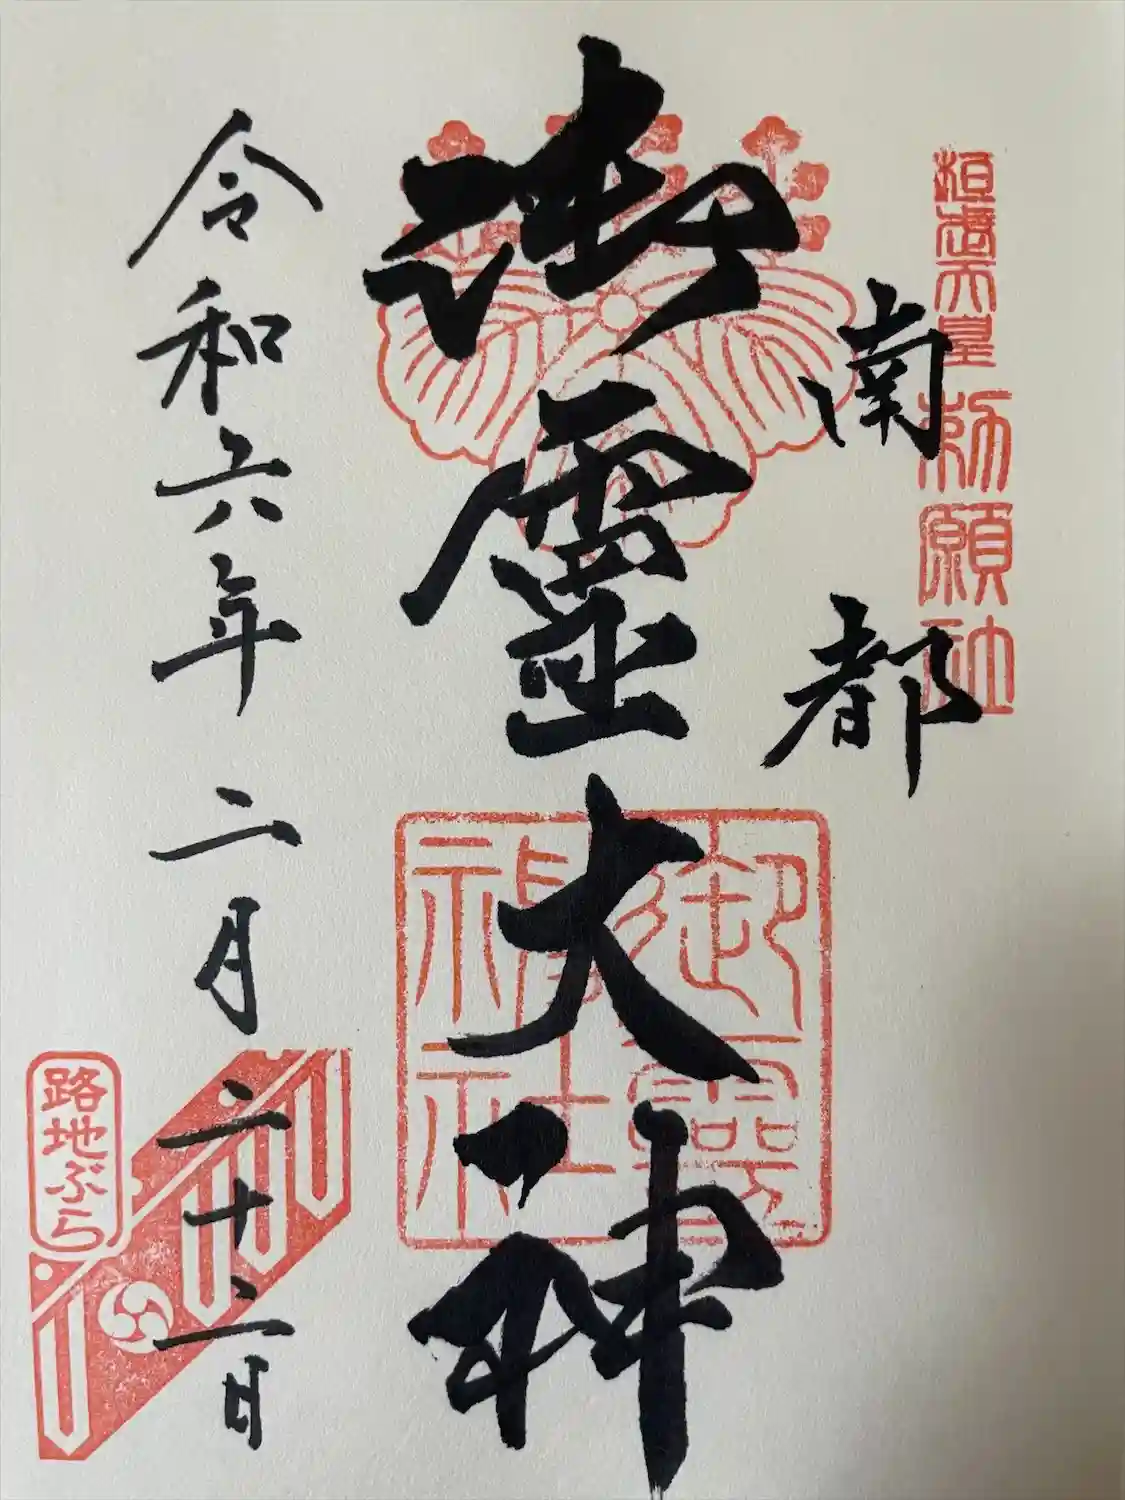 桓武天皇
勅願社
南都
御靈大神
御霊神社
令和六年二月二十二日
路地ぶら